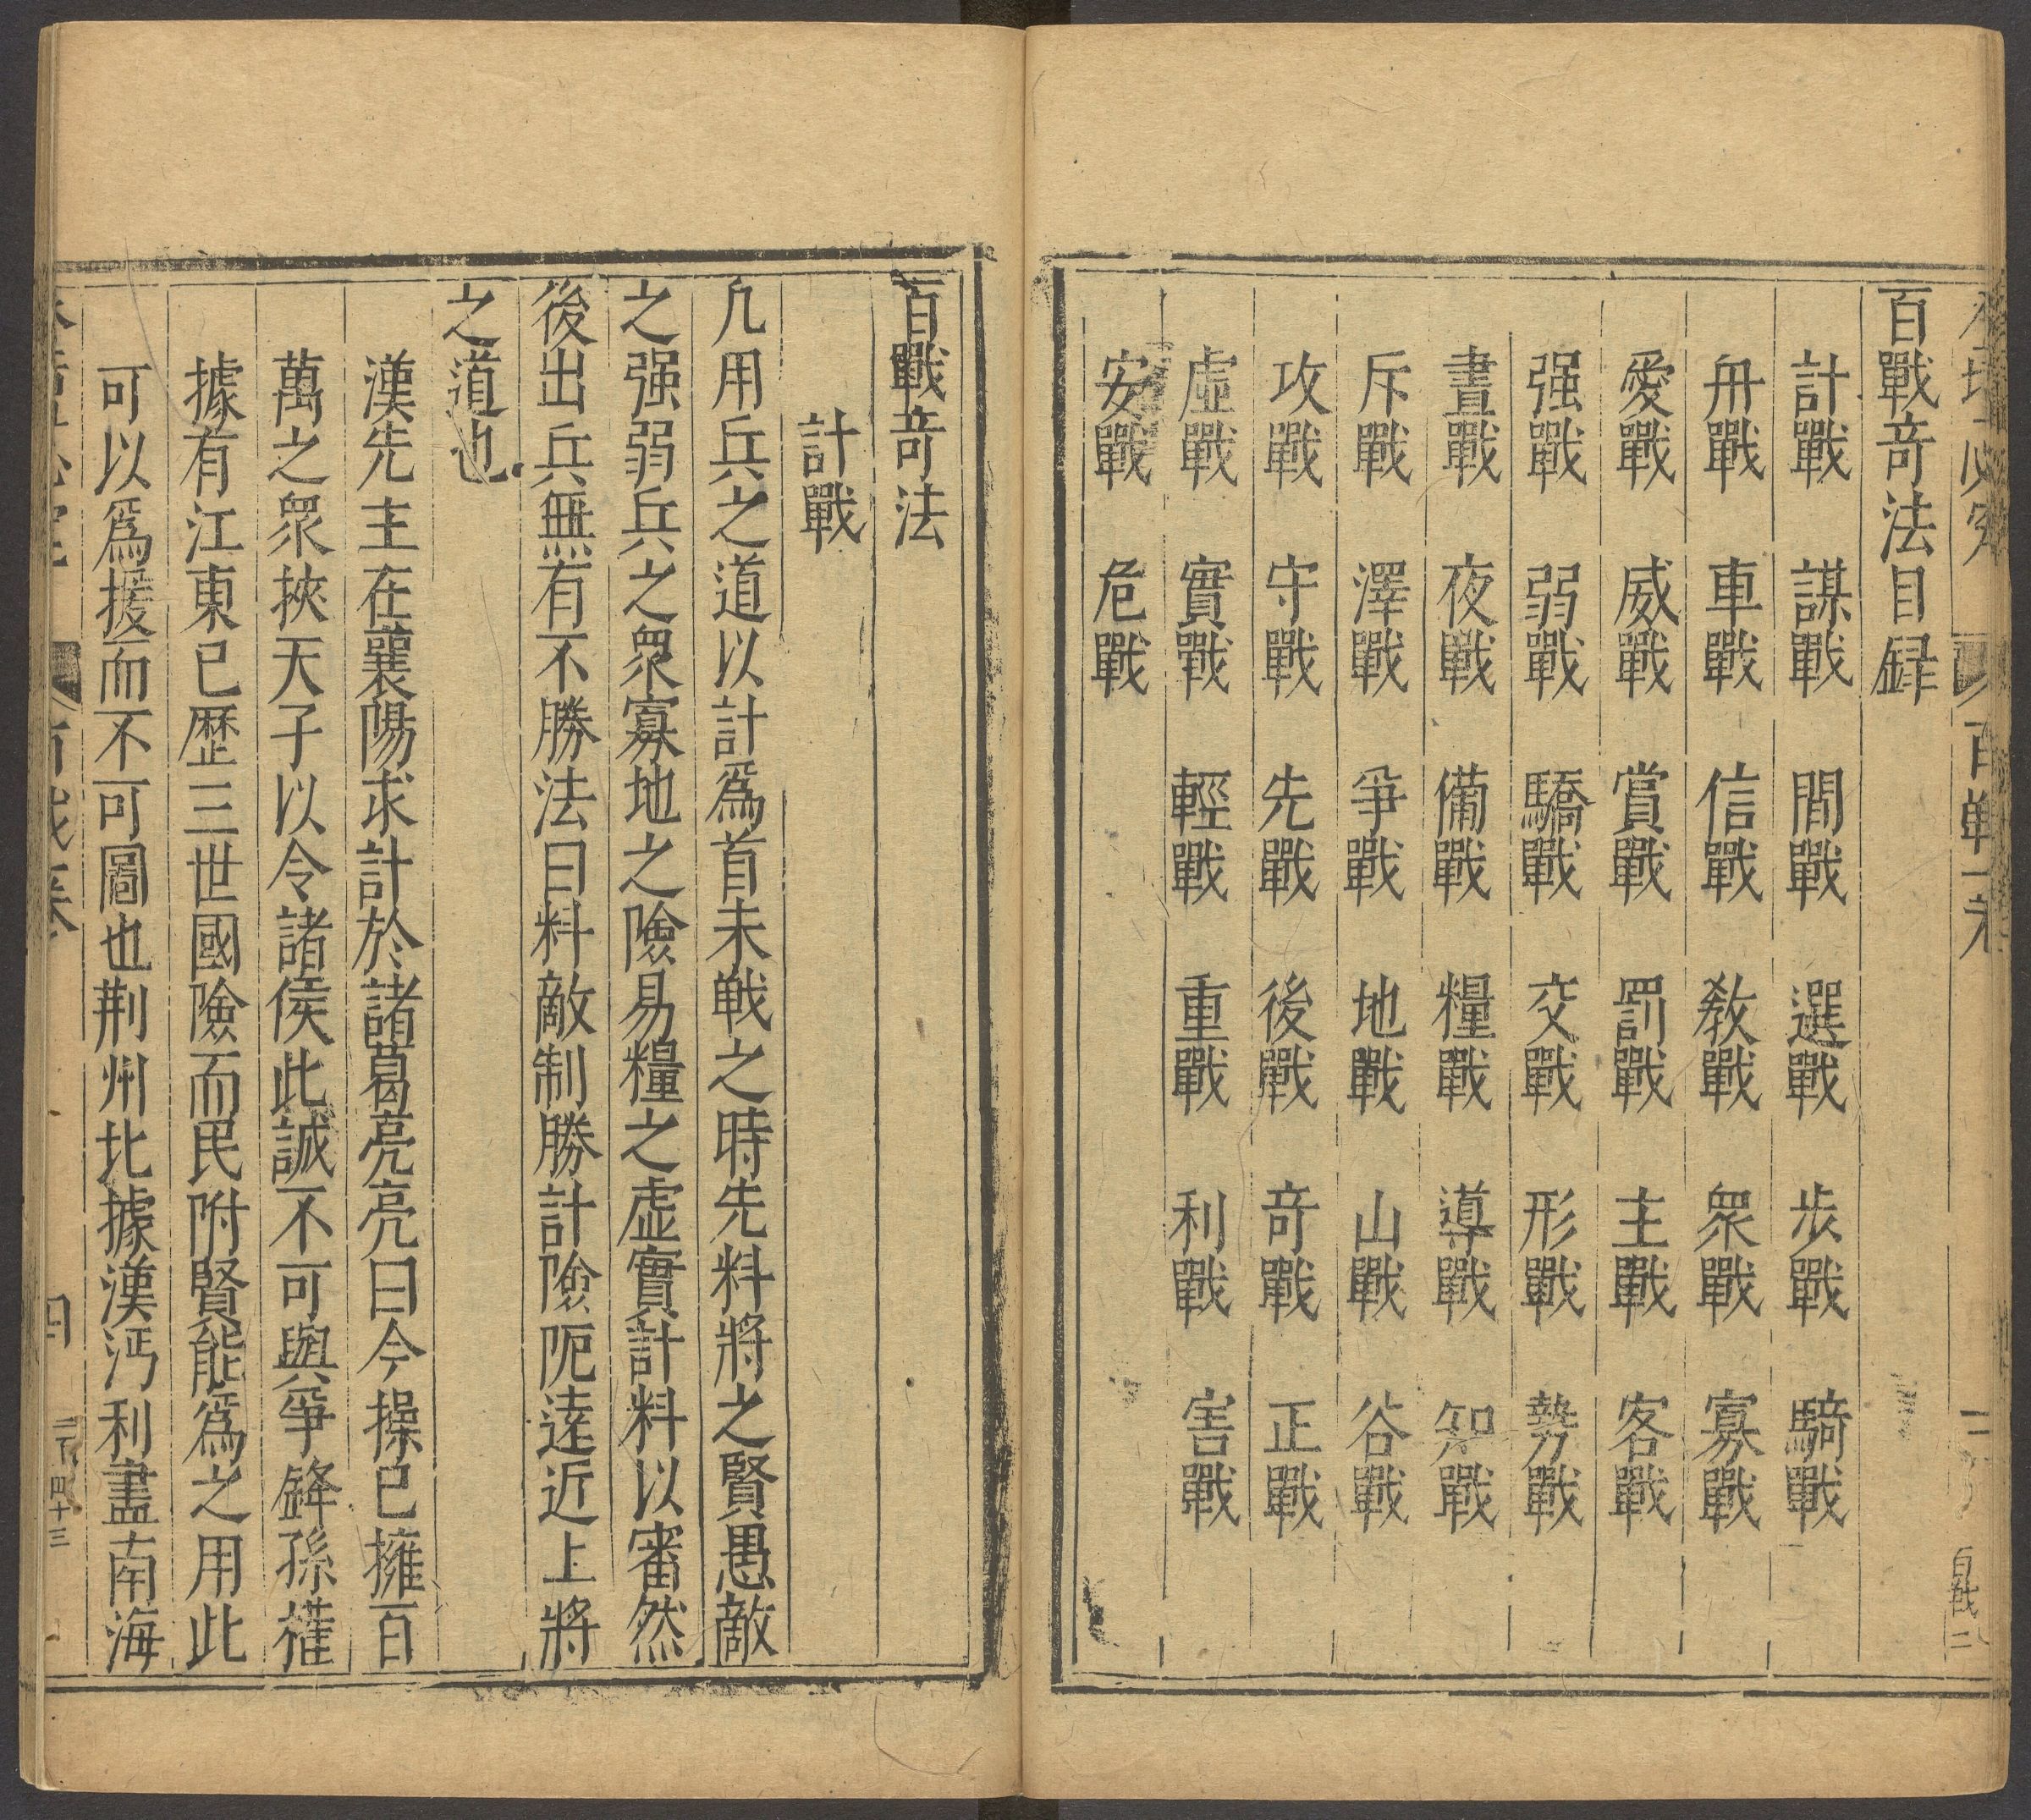 百戰奇法目録
計戰 謀戰 間戰 選戰 步戰 騎戰
舟戰 車戰 信戰 教戰 衆戰 寡戰
愛戰 威戰 賞戰 罰戰 主戰 客戰
强戰 弱戰 驕戰 交戰 形戰 勢戰
晝戰 夜戰 備戰 糧戰 導戰 知戰
斥戰 澤戰 爭戰 地戰 山戰 谷戰
攻戰 守戰 先戰 後戰 奇戰 正戰
虛戰 實戰 輕戰 重戰 利戰 害戰
安戰 危戰
百戰奇法
計戰
凡用兵之道以計爲首未戰之時先料將之賢愚敵
之强弱兵之衆寡地之險易糧之虛實計料以審然
後出兵無有不勝法曰料敵制勝計險阨逺近上將
之道也
漢先主在襄陽求計於諸葛亮亮曰今操已擁百
萬之衆挾天子以令諸侯此誠不可與爭鋒孫權
據有江東已歷三世國險而民附賢能爲之用此
可以爲援而不可圖也荆州北據漢沔利盡南海